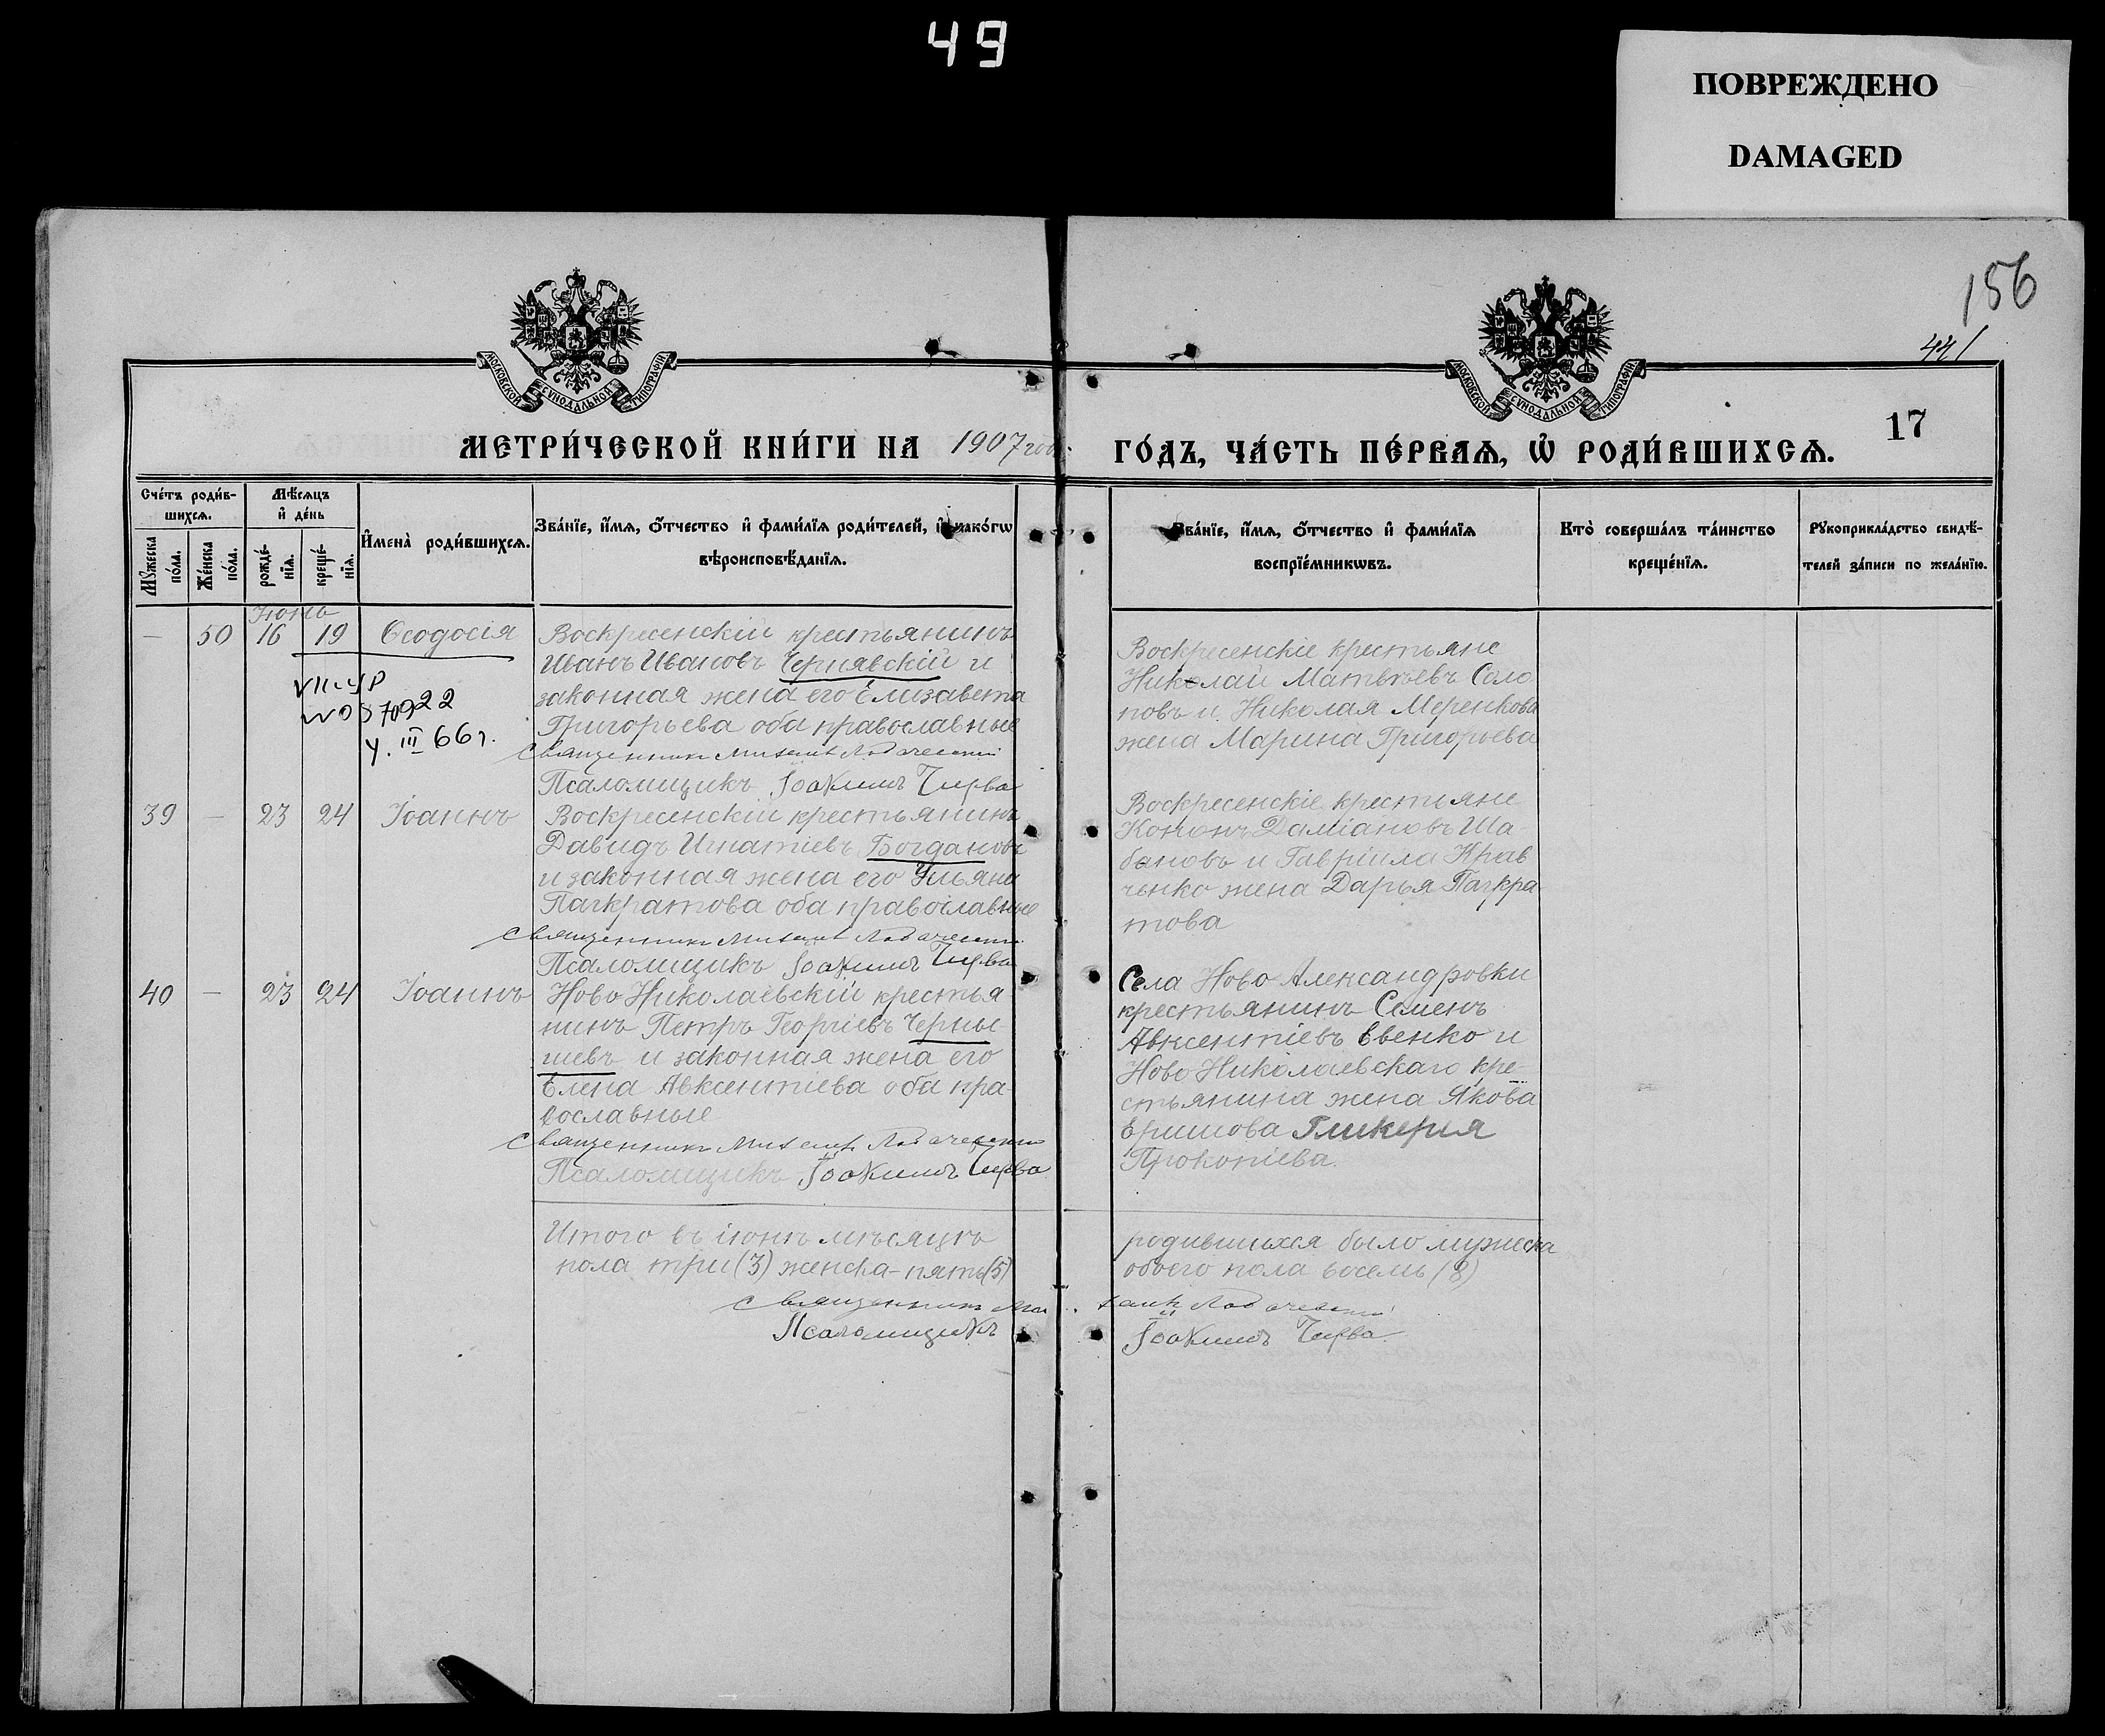 49
ПОВРЕЖДЕНО
DAMAGED
156
441
17
МОСКОВСКОЙ СѴНОДАЛЬНОЙ ТИПОГРАФІИ
МОСКОВСКОЙ СѴНОДАЛЬНОЙ ТИПОГРАФІИ
МЕТРИ́ЧЕСКОЙ КНИ́ГИ НА 1907 год
ГО́ДЪ, ЧА́СТЬ ПЕ́РВАѦ, Ѡ҆ РОДИ́ВШИХСѦ.
Сче́тъ роди́в-
шихсѧ.
Мꙋ́жеска по́ла.
Же́нска по́ла.
Мѣ́сѧцъ
и҆ де́нь
рожде́-нїѧ.
креще́-нїѧ.
И҆мена̀ роди́вшихсѧ.
Зва́нїе, и҆́мѧ, ѻ҆́тчество и҆ фами́лїѧ роди́телей, и҆ како́гѡ
вѣроисповѣ́данїѧ.
Зва́нїе, и҆́мѧ, ѻ҆́тчество и҆ фами́лїѧ
воспрїе́мникѡвъ.
Кто̀ соверша́лъ та́инство
креще́нїѧ.
Рꙋкоприкла́дство свидѣ́-
телей за́писи по жела́нїю.
Іюнь
— 50 16 19 Ѳеодосія
Воскресенскій крестьянинъ
Иванъ Ивановъ Чернявскій и
законная жена его Елизавета
Григорьева оба православные
Священникъ Михаилъ
Псаломщикъ Іоакимъ Чирва
70922
III 66г.
Воскресенскіе крестьяне
Николай Матвѣевъ Соло
повъ и Николая Меренкова
жена Марина Григорьева
39 — 23 24 Іоаннъ
Воскресенскій крестьянинъ
Давидъ Игнатіевъ Богдановъ
и законная жена его Ульяна
Панкратова оба православные
Священникъ Михаилъ
Псаломщикъ Іоакимъ Чирва
Воскресенскіе крестьяне
Кононъ Даміановъ Ша
бановъ и Гавріила Крав
ченко жена Дарья Панкра
това
40 — 23 24 Іоаннъ
Ново Николаевскій крестья
нинъ Петръ Георгіевъ Черны
шевъ и законная жена его
Елена Авксентіева оба пра-
вославные
Священникъ Михаилъ
Псаломщикъ Іоакимъ Чирва
Села Ново Александровки
крестьянинъ Семенъ
Авксентіевъ Евенко и
Ново Николаевскаго кре-
стьянина жена Якова
Еришова Гликерія
Прокопіева.
Итого въ іюнѣ мѣсяцѣ родившихся было мужеска
пола три (3) женска – пять (5) обоего пола восемь (8)
Священникъ Михаилъ
Псаломщикъ Іоакимъ Чирва